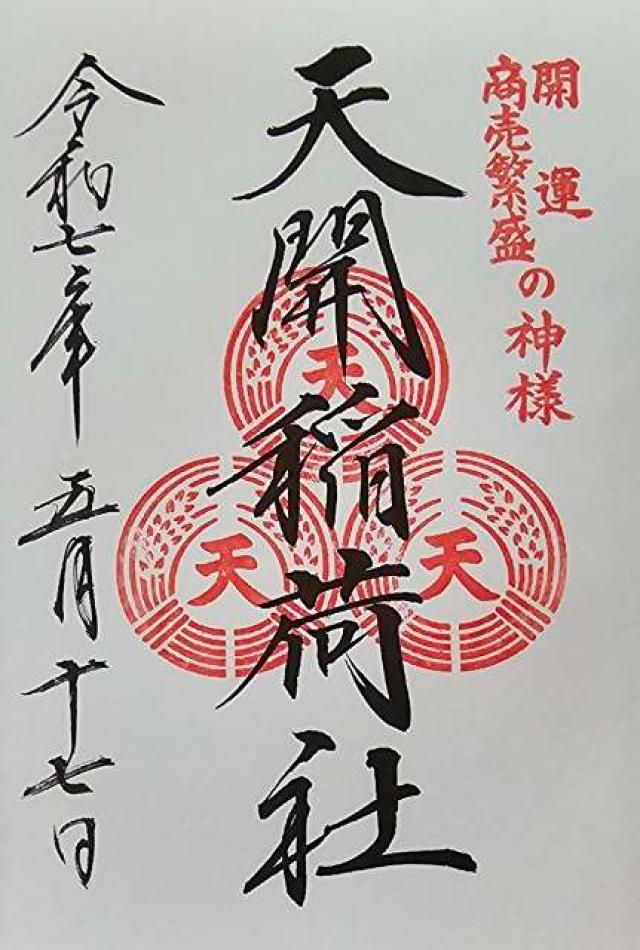 開運
商売繁盛の神様
天開稲荷社
天
天
天
令和七年 五月十七日